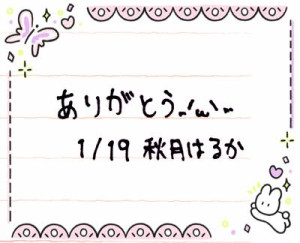 ありがとう.,'ω',.
1/19 秋月はるか